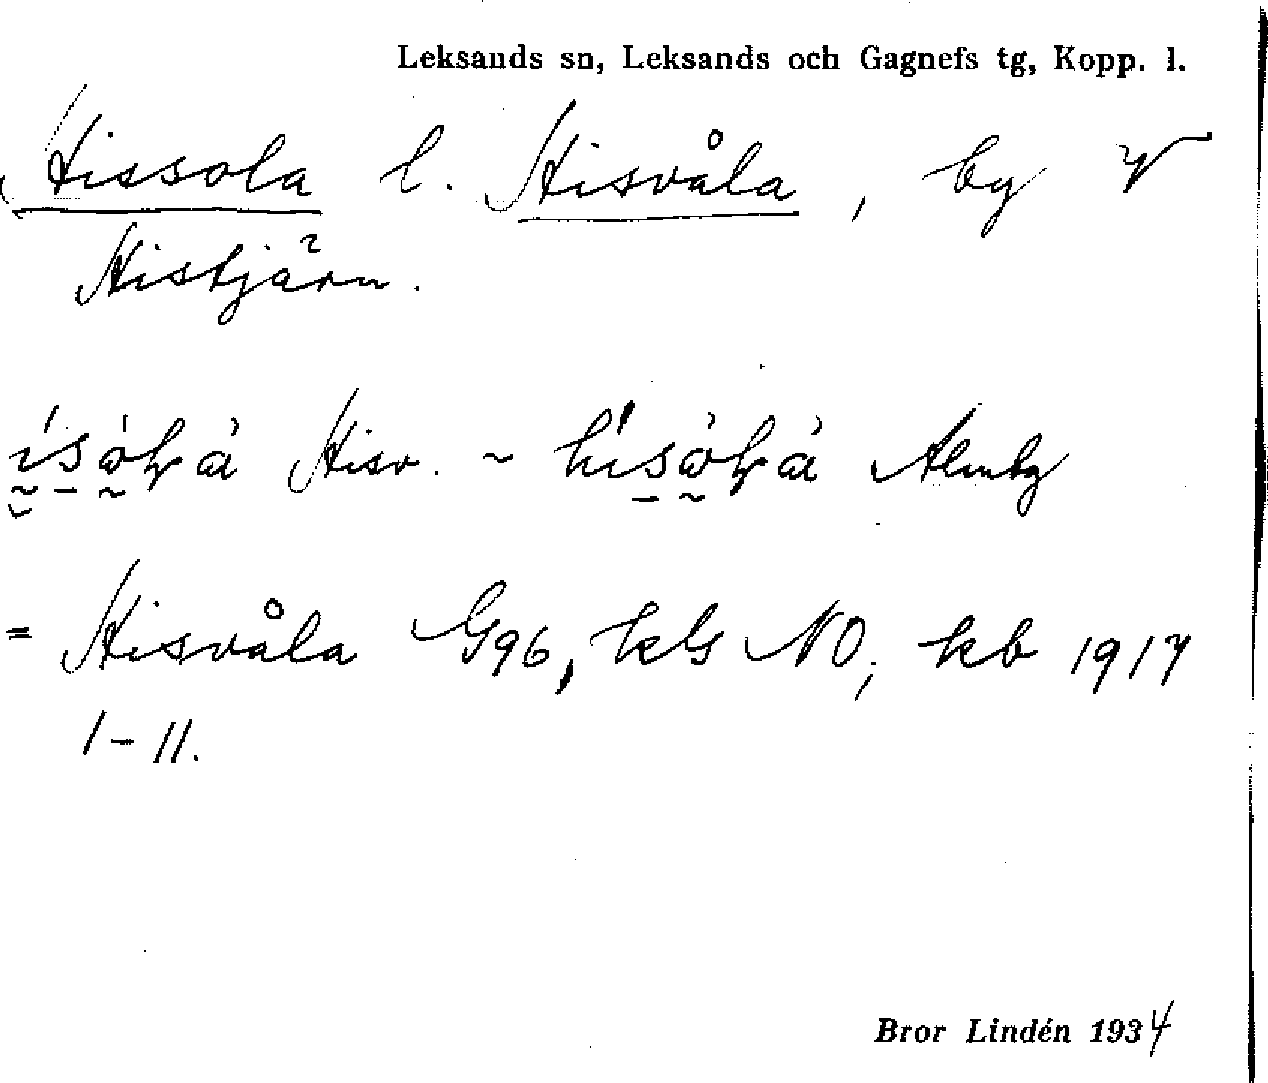 Leksands sn, Leksands och Gagnefs tg, Kopp. l.
Hissola l. Hisvåla, by V
Histjärn.
Hisv. ~ Almby
= Hisvåla G96, kls NO; kb 1917
1-11.
Bror Lindén 1934